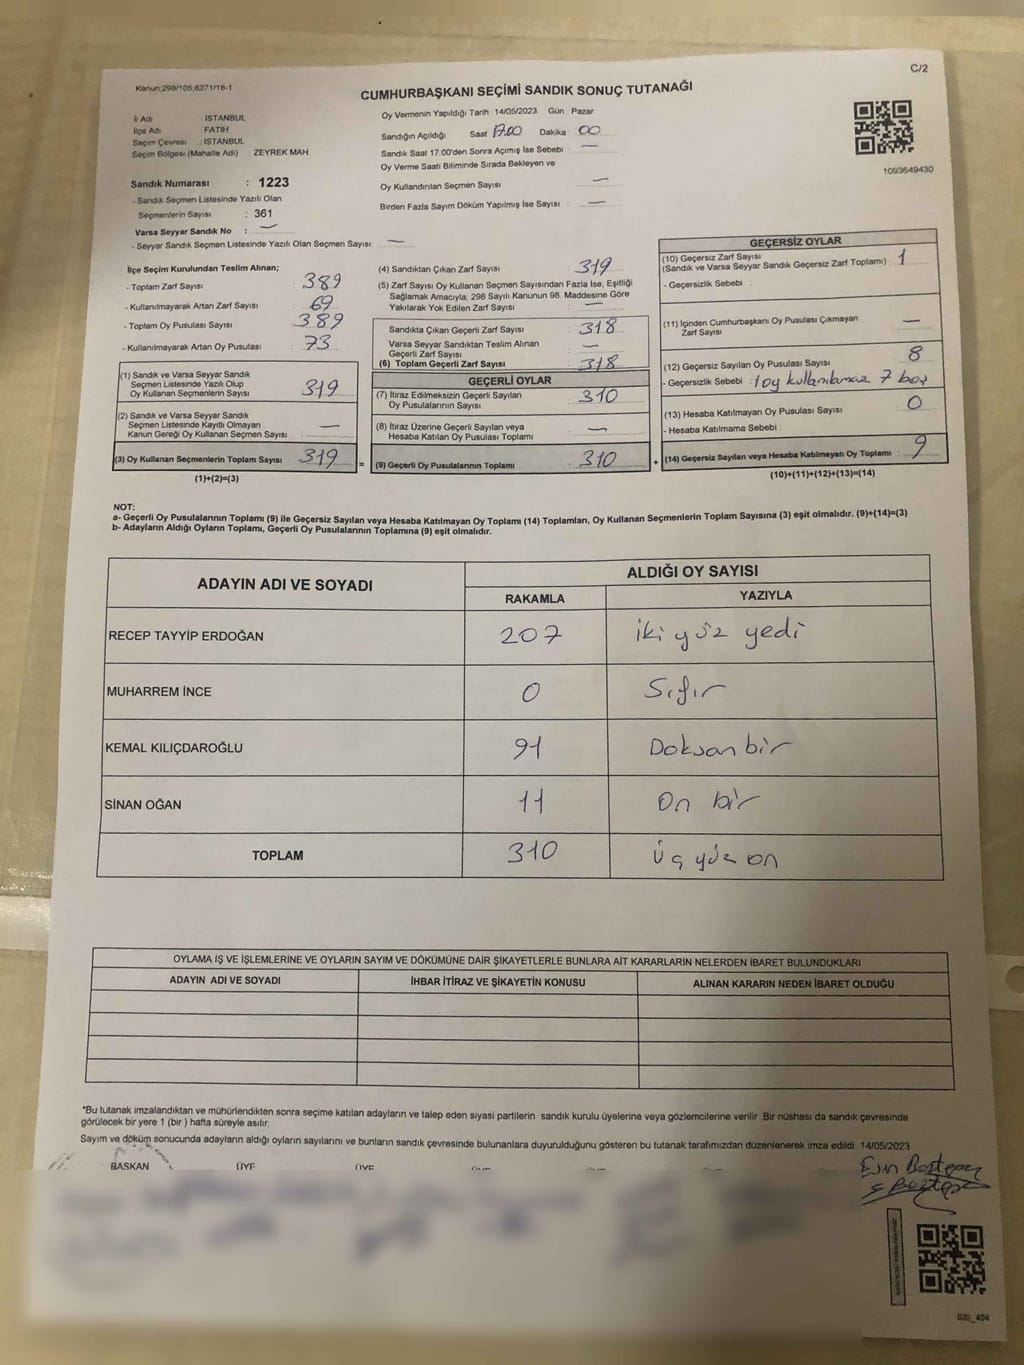 C/2
Kanun;298/105,6271/18-1
CUMHURBAŞKANI SEÇİMİ SANDIK SONUÇ TUTANAĞI
İl Adı : İSTANBUL
İlçe Adı : FATİH
Seçim Çevresi : İSTANBUL
Seçim Bölgesi (Mahalle Adı) : ZEYREK MAH.
Sandık Numarası : 1223
- Sandık Seçmen Listesinde Yazılı Olan
Seçmenlerin Sayısı : 361
Varsa Seyyar Sandık No : —
- Seyyar Sandık Seçmen Listesinde Yazılı Olan Seçmen Sayısı: —
Oy Vermenin Yapıldığı Tarih :14/05/2023 Gün : Pazar
Sandığın Açıldığı Saat : 17.00 Dakika : 00
Sandık Saat 17.00'den Sonra Açımış İse Sebebi : —
Oy Verme Saati Bitiminde Sırada Bekleyen ve
Oy Kullandırılan Seçmen Sayısı : —
Birden Fazla Sayım Döküm Yapılmış İse Sayısı : —
1093649430
İlçe Seçim Kurulundan Teslim Alınan;
- Toplam Zarf Sayısı : 389
- Kullanılmayarak Artan Zarf Sayısı : 69
- Toplam Oy Pusulası Sayısı : 389
- Kullanılmayarak Artan Oy Pusulası : 73
(1) Sandık ve Varsa Seyyar Sandık
Seçmen Listesinde Yazılı Olup
Oy Kullanan Seçmenlerin Sayısı : 319
(2) Sandık ve Varsa Seyyar Sandık
Seçmen Listesinde Kayıtlı Olmayan
Kanun Gereği Oy Kullanan Seçmen Sayısı : —
(3) Oy Kullanan Seçmenlerin Toplam Sayısı : 319 =
(1)+(2)=(3)
(4) Sandıktan Çıkan Zarf Sayısı : 319
(5) Zarf Sayısı Oy Kullanan Seçmen Sayısından Fazla İse, Eşitliği
Sağlamak Amacıyla; 298 Sayılı Kanunun 98. Maddesine Göre
Yakılarak Yok Edilen Zarf Sayısı : —
Sandıkta Çıkan Geçerli Zarf Sayısı : 318
Varsa Seyyar Sandıktan Teslim Alınan
Geçerli Zarf Sayısı : —
(6) Toplam Geçerli Zarf Sayısı : 318
GEÇERLİ OYLAR
(7) İtiraz Edilmeksizin Geçerli Sayılan
Oy Pusulalarının Sayısı : 310
(8) İtiraz Üzerine Geçerli Sayılan veya
Hesaba Katılan Oy Pusulası Toplamı : —
(9) Geçerli Oy Pusulalarının Toplamı : 310 +
GEÇERSİZ OYLAR
(10) Geçersiz Zarf Sayısı : 1
(Sandık ve Varsa Seyyar Sandık Geçersiz Zarf Toplamı)
- Geçersizlik Sebebi :
(11) İçinden Cumhurbaşkanı Oy Pusulası Çıkmayan
Zarf Sayısı : —
(12) Geçersiz Sayılan Oy Pusulası Sayısı : 8
- Geçersizlik Sebebi : 1 oy kullanılamaz 7 boş
(13) Hesaba Katılmayan Oy Pusulası Sayısı : 0
- Hesaba Katılmama Sebebi :
(14) Geçersiz Sayılan veya Hesaba Katılmayan Oy Toplamı : 9
(10)+(11)+(12)+(13)=(14)
NOT:
a- Geçerli Oy Pusulalarının Toplamı (9) ile Geçersiz Sayılan veya Hesaba Katılmayan Oy Toplamı (14) Toplamları, Oy Kullanan Seçmenlerin Toplam Sayısına (3) eşit olmalıdır. (9)+(14)=(3)
b- Adayların Aldığı Oyların Toplamı, Geçerli Oy Pusulalarının Toplamına (9) eşit olmalıdır.
ADAYIN ADI VE SOYADI ALDIĞI OY SAYISI
RAKAMLA YAZIYLA
RECEP TAYYİP ERDOĞAN 207 iki yüz yedi
MUHARREM İNCE 0 Sıfır
KEMAL KILIÇDAROĞLU 91 Doksan bir
SİNAN OĞAN 11 On bir
TOPLAM 310 üç yüz on
OYLAMA İŞ VE İŞLEMLERİNE VE OYLARIN SAYIM VE DÖKÜMÜNE DAİR ŞİKAYETLERLE BUNLARA AİT KARARLARIN NELERDEN İBARET BULUNDUKLARI
ADAYIN ADI VE SOYADI İHBAR İTİRAZ VE ŞİKAYETİN KONUSU ALINAN KARARIN NEDEN İBARET OLDUĞU
*Bu tutanak imzalandıktan ve mühürlendikten sonra seçime katılan adayların ve talep eden siyasi partilerin sandık kurulu üyelerine veya gözlemcilerine verilir .Bir nüshası da sandık çevresinde
görülecek bir yere 1 (bir ) hafta süreyle asılır.
Sayım ve döküm sonucunda adayların aldığı oyların sayılarını ve bunların sandık çevresinde bulunanlara duyurulduğunu gösteren bu tutanak tarafımızdan düzenlenerek imza edildi. 14/05/2023
BAŞKAN ÜYE ÜYE